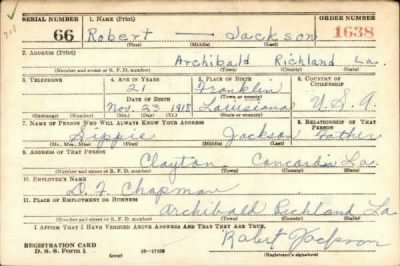 SERIAL NUMBER 1. NAME (Print) ORDER NUMBER
66 Robert — Jackson 1638
(First) (Middle) (Last)
2. ADDRESS (Print)
Archibald Richland La.
(Number and street or R. F. D. number) (Town) (County) (State)
3. TELEPHONE 4. AGE IN YEARS 5. PLACE OF BIRTH 6. COUNTRY OF CITIZENSHIP
21 Franklin
DATE OF BIRTH (Town or county)
Nov. 23 1918 Louisiana U.S.A.
(Exchange) (Number) (Mo.) (Day) (Yr.) (State or country)
7. NAME OF PERSON WHO WILL ALWAYS KNOW YOUR ADDRESS 8. RELATIONSHIP OF THAT PERSON
Jackson Father
(Mr., Mrs., Miss) (First) (Middle) (Last)
9. ADDRESS OF THAT PERSON
Clayton, Concordia La.
(Number and street or R. F. D. number) (Town) (County) (State)
10. EMPLOYER'S NAME
D. F. Chapman
11. PLACE OF EMPLOYMENT OR BUSINESS
Archibald Richland La.
(Number and street or R. F. D. number) (Town) (County) (State)
I AFFIRM THAT I HAVE VERIFIED ABOVE ANSWERS AND THAT THEY ARE TRUE.
REGISTRATION CARD
D. S. S. Form 1 (over) Robert Jackson